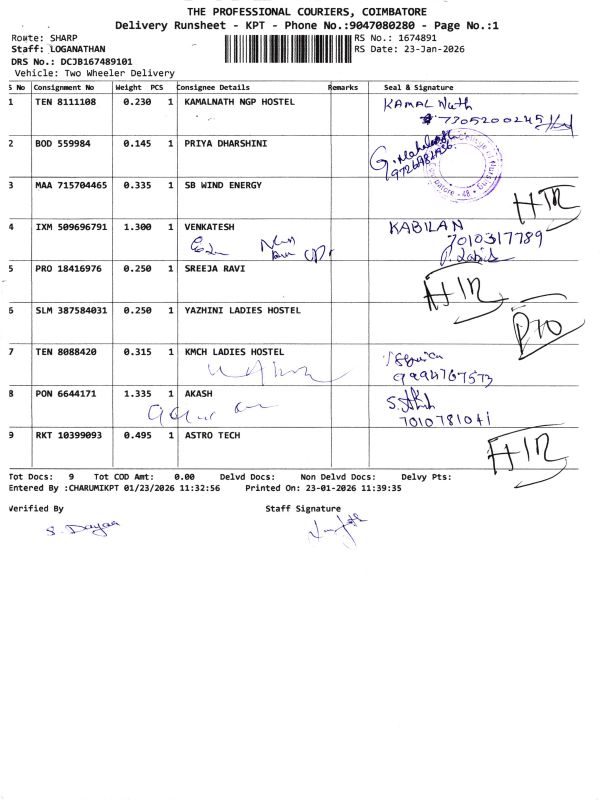 THE PROFESSIONAL COURIERS, COIMBATORE
Delivery Runsheet - KPT - Phone No.:9047080280 - Page No.:1
Route: SHARP
RS No.: 1674891
Staff: LOGANATHAN
RS Date: 23-Jan-2026
DRS No.: DCJB167489101
Vehicle: Two Wheeler Delivery
S No Consignment No Weight PCS Consignee Details Remarks Seal & Signature
1 TEN 8111108 0.230 1 KAMALNATH NGP HOSTEL KAMAL Nath
7305200245
2 BOD 559984 0.145 1 PRIYA DHARSHINI
3 MAA 715704465 0.335 1 SB WIND ENERGY
4 IXM 509696791 1.300 1 VENKATESH KABILAN
7010317789
5 PRO 18416976 0.250 1 SREEJA RAVI
6 SLM 387584031 0.250 1 YAZHINI LADIES HOSTEL
Pro
7 TEN 8088420 0.315 1 KMCH LADIES HOSTEL
9994767573
8 PON 6644171 1.335 1 AKASH
7010781041
9 RKT 10399093 0.495 1 ASTRO TECH
Tot Docs: 9 Tot COD Amt: 0.00 Delvd Docs: Non Delvd Docs: Delvy Pts:
Entered By :CHARUMIKPT 01/23/2026 11:32:56 Printed On: 23-01-2026 11:39:35
Verified By Staff Signature